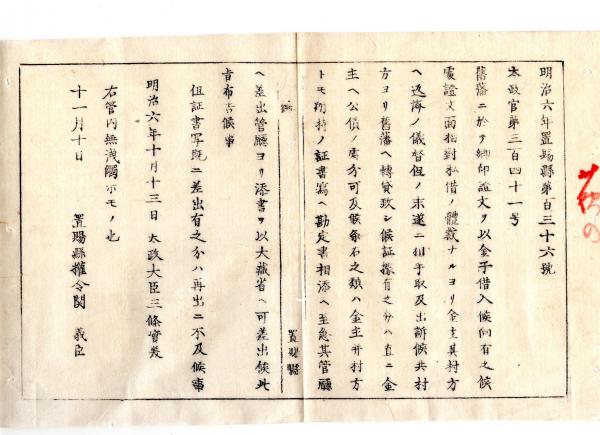 明治六年置賜縣第百三十六號
太政官第三百四十一号
舊藩ニ於テ御印證文ヲ以金子借入候向有之候
處證文面相對私借ノ體裁ナルヨリ金主其村方
ヘ返済ノ儀督促ノ末遂ニ相手取及出訴候共村
方ヨリ舊藩ヘ轉貸致シ候証據有之分ハ直ニ金
主ヘ公債ノ處分可及候条右之類ハ金主并村方
トモ所持ノ証書寫ヘ勘定書相添ヘ至急其管廳
置賜縣
ヘ差出管廳ヨリ添書ヲ以大藏省ヘ可差出候此
旨布告候事
但証書写既ニ差出有之分ハ再出ニ不及候事
明治六年十月十三日 太政大臣三條實美
右管内無洩觸示モノ也
十一月十日 置賜縣權令関 義臣